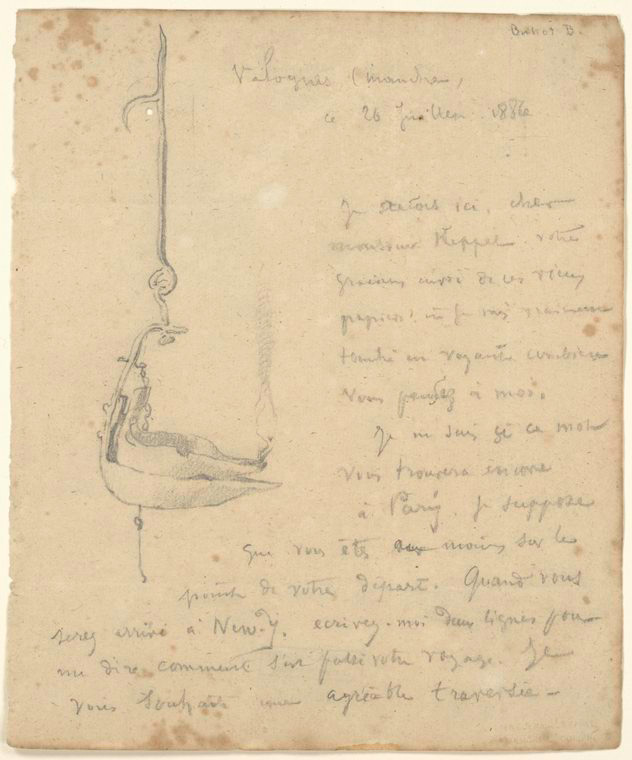 Buhot B.
Valognes (manche),
ce 26 Juillet 1886
Je reçois ici, cher
monsieur Keppel votre
gracieux envoi de ces vieux
papiers, et je suis vraiment
touché en voyant combien
vous pensez à moi.
Je ne sais si ce mot
vous trouvera encore
à Paris. Je suppose
que vous êtes au moins sur le
point de votre départ. Quand vous
serez arrivé à New-Y. ecrivez-moi deux lignes pour
me dire comment s'est passé votre voyage. Je
vous souhaite une agréable traversée -